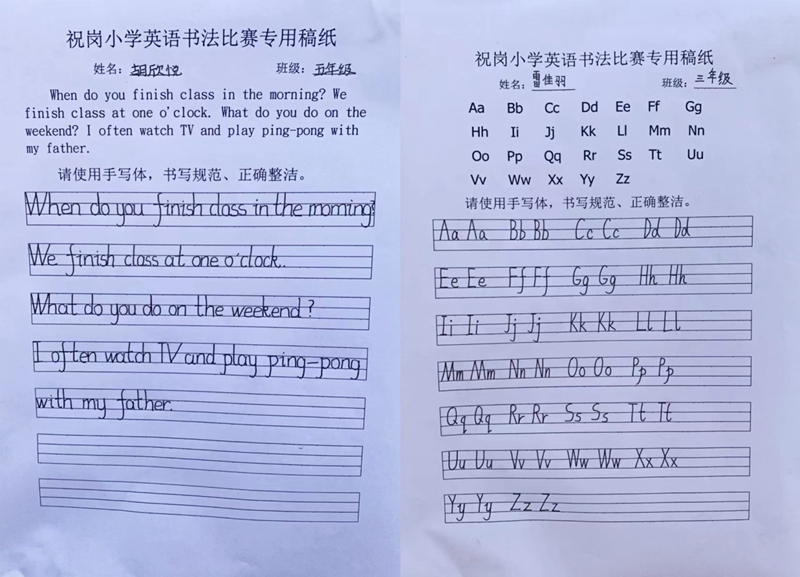 祝岗小学英语书法比赛专用稿纸
姓名：胡欣悦 班级：五年级
When do you finish class in the morning? We
finish class at one o'clock. What do you do on the
weekend? I often watch TV and play ping-pong with
my father.
请使用手写体，书写规范、正确整洁。
When do you finish class in the morning?
We finish class at one o'clock.
What do you do on the weekend?
I often watch TV and play ping-pong
with my father.
祝岗小学英语书法比赛专用稿纸
姓名：雷佳羽 班级：三年级
Aa Bb Cc Dd Ee Ff Gg
Hh Ii Jj Kk Ll Mm Nn
Oo Pp Qq Rr Ss Tt Uu
Vv Ww Xx Yy Zz
请使用手写体，书写规范、正确整洁。
Aa Aa Bb Bb Cc Cc Dd Dd
Ee Ee Ff Ff Gg Gg Hh Hh
Ii Ii Jj Jj Kk Kk Ll Ll
Mm Mm Nn Nn Oo Oo Pp Pp
Qq Qq Rr Rr Ss Ss Tt Tt
Uu Uu Vv Vv Ww Ww Xx Xx
Yy Yy Zz Zz